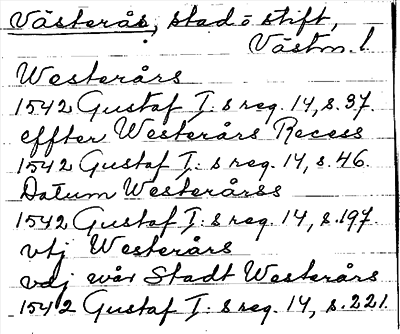 Västerås, stad o stift,
Västm. l.
Westerårs
1542 Gustaf I:s reg. 14, s. 37.
effter Westerårs Recess
1542 Gustaf I:s reg. 14, s. 46.
Datum Westerårss
1542 Gustaf I:s reg. 14, s. 197.
vtj Westerårs
vdj wår Stadt Westerårs
1542 Gustaf I:s reg. 14, s. 221.